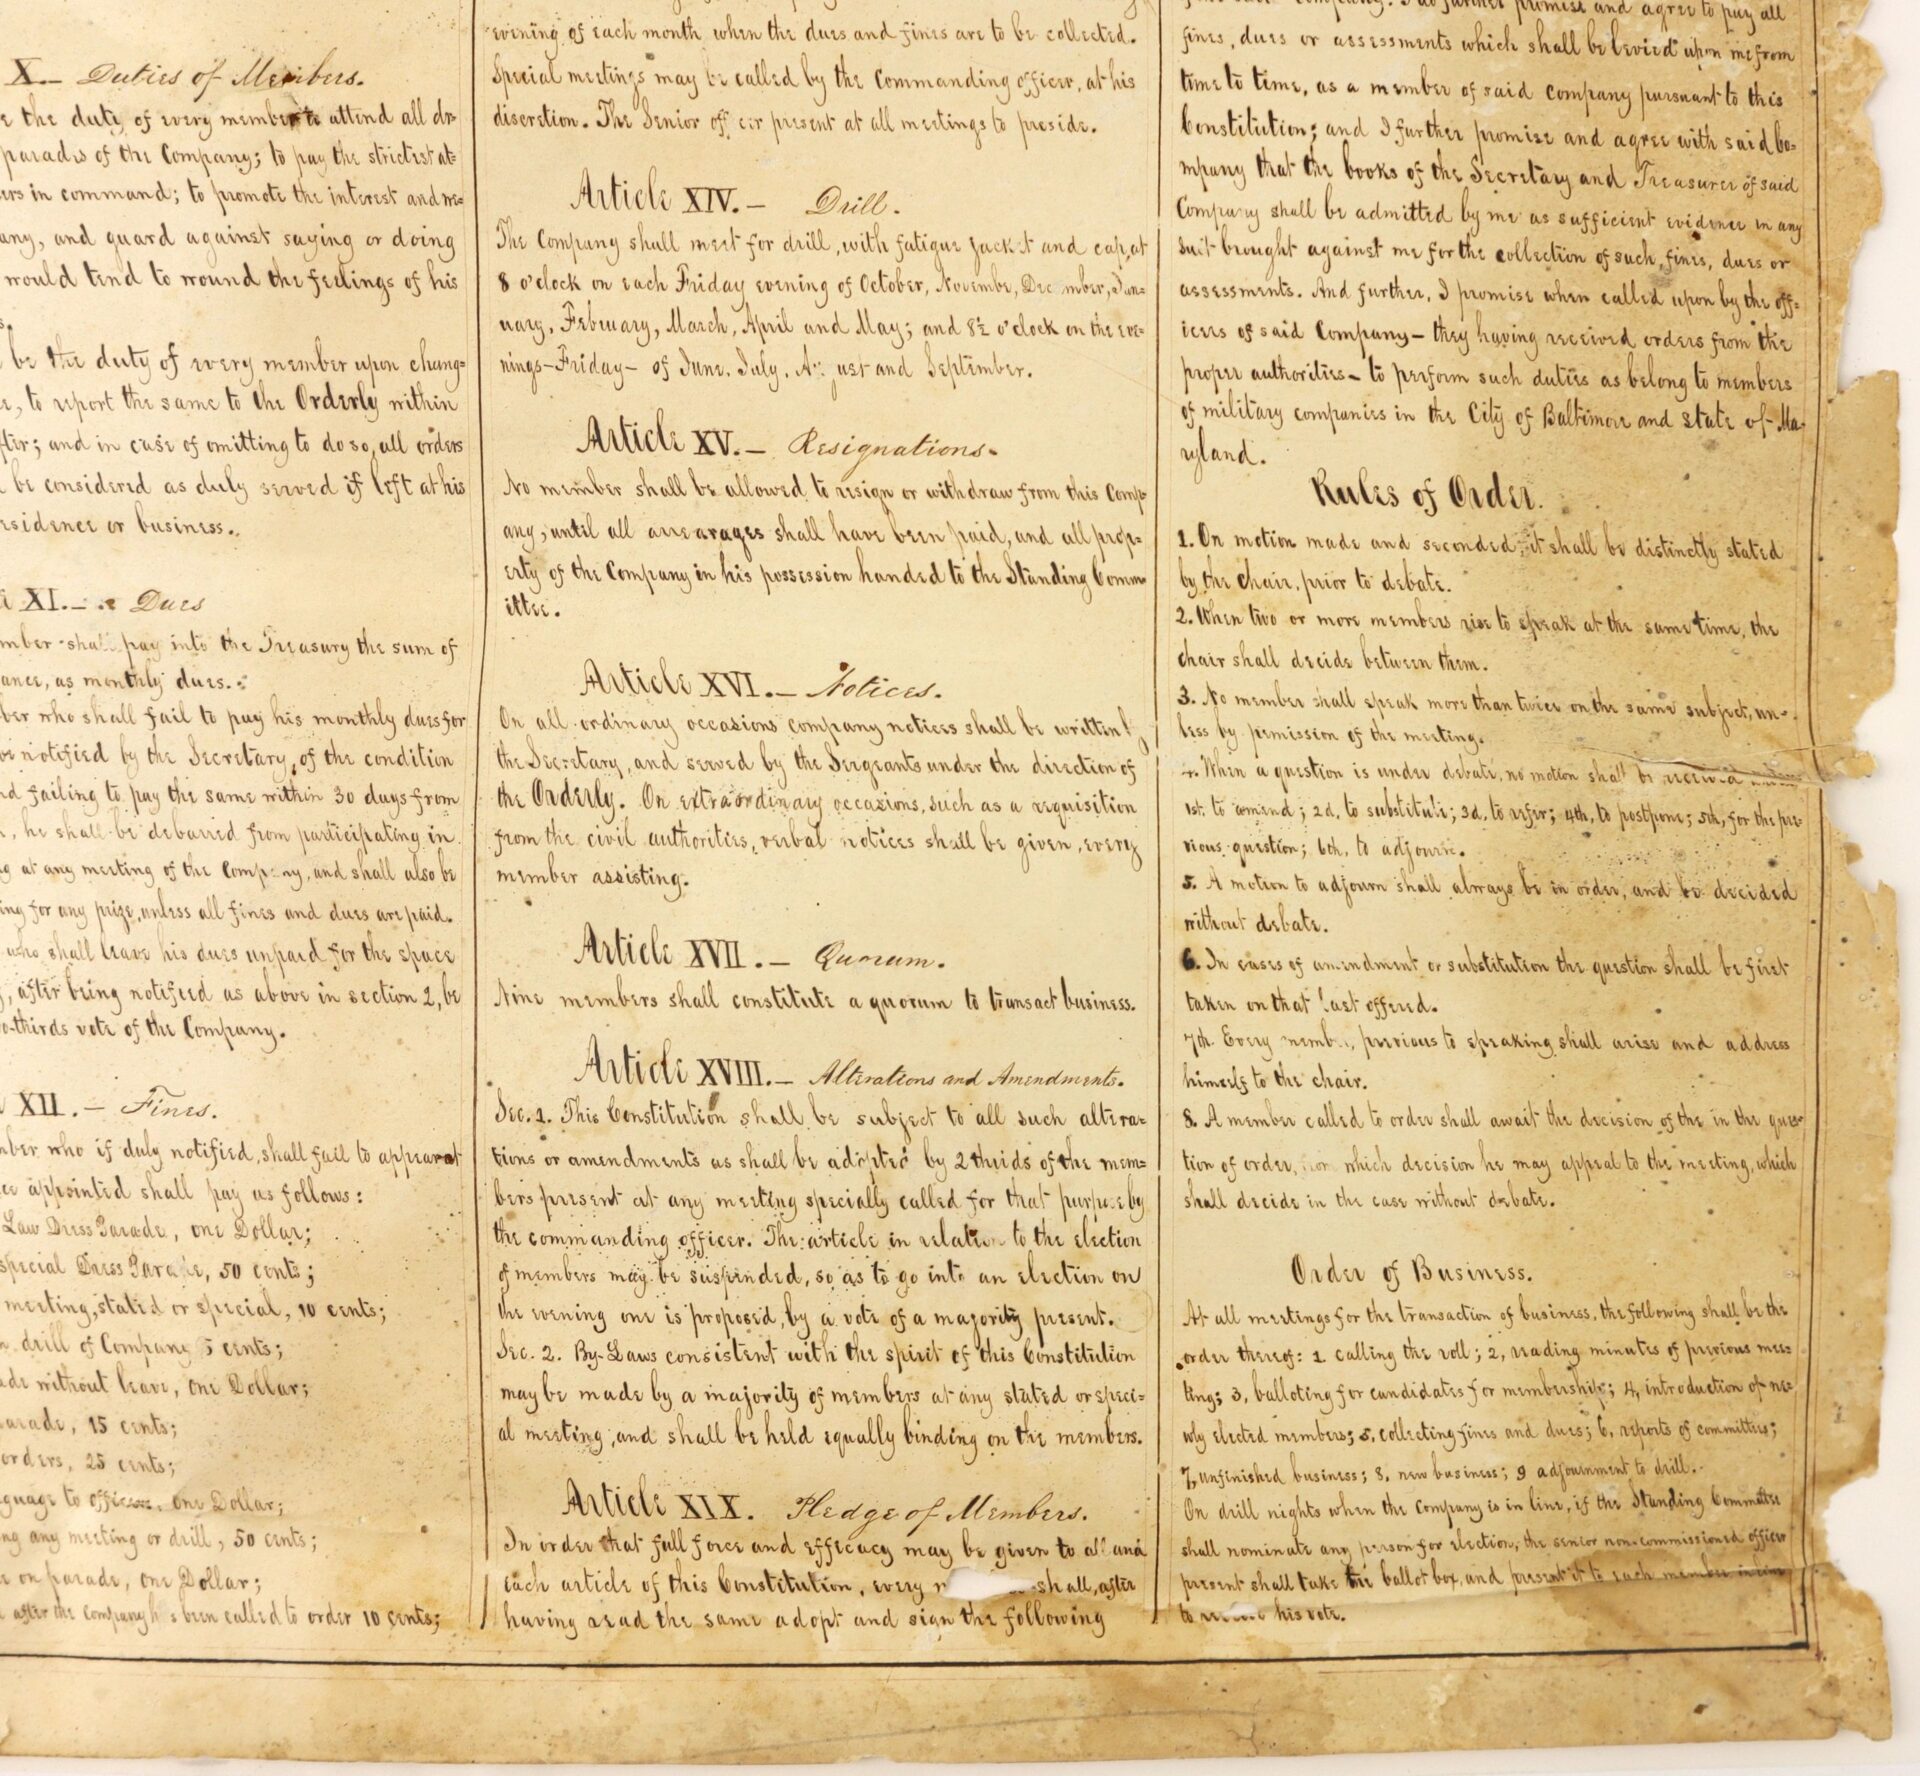 X.— Duties of Members.
the duty of every member to attend all dr-
parades of the Company; to pay the strictest at-
in command; to promote the interest and we=
any, and guard against saying or doing
would tend to wound the feelings of his
be the duty of every member upon chang=
to report the same to the Orderly within
and in case of omitting to do so, all orders
be considered as duly served if left at his
residence or business.
XI.— Dues
shall pay into the Treasury the sum of
as monthly dues.
who shall fail to pay his monthly dues for
notified by the Secretary, of the condition
failing to pay the same within 30 days from
he shall be debarred from participating in
at any meeting of the Company, and shall also be
for any prize, unless all fines and dues are paid.
who shall leave his dues unpaid for the space
after being notified as above in section 2, be
thirds vote of the Company.
XII.— Fines.
who if duly notified, shall fail to appear at
appointed shall pay as follows:
Law Dress Parade, one Dollar;
special Dress Parade, 50 cents;
meeting, stated or special, 10 cents;
drill of Company 5 cents;
without leave, one Dollar;
parade, 15 cents;
orders, 25 cents;
to officers, one Dollar;
any meeting or drill, 50 cents;
on parade, one Dollar;
after the Company has been called to order 10 cents;
evening of each month when the dues and fines are to be collected.
Special meetings may be called by the Commanding officer, at his
discretion. The Senior officer present at all meetings to preside.
Article XIV.— Drill.
The Company shall meet for drill, with fatigue jacket and cap, at
8 o'clock on each Friday evening of October, November, December, Jan-
uary, February, March, April and May; and 8½ o'clock on the eve-
nings—Friday— of June, July, August and September.
Article XV.— Resignations.
No member shall be allowed to resign or withdraw from this Comp-
any, until all arrearages shall have been paid, and all prop=
erty of the Company in his possession handed to the Standing Comm
ittee.
Article XVI.— Notices.
On all ordinary occasions company notices shall be written
the Secretary, and served by the Sergeants under the direction of
the Orderly. On extraordinary occasions, such as a requisition
from the civil authorities, verbal notices shall be given, every
member assisting.
Article XVII.— Quorum.
Nine members shall constitute a quorum to transact business.
Article XVIII.— Alterations and Amendments.
Sec. 1. This Constitution shall be subject to all such altera-
tions or amendments as shall be adopted by 2 thirds of the mem=
bers present at any meeting specially called for that purpose by
the commanding officer. The article in relation to the election
of members may be suspended, so as to go into an election on
the evening one is proposed, by a vote of a majority present.
Sec. 2. By-Laws consistent with the spirit of this Constitution
may be made by a majority of members at any stated or speci-
al meeting, and shall be held equally binding on the members.
Article XIX. Pledge of Members.
In order that full force and effecacy may be given to all and
each article of this Constitution, every shall, after
having read the same adopt and sign the following
Company. I do further promise and agree to pay all
fines, dues or assessments which shall be levied upon me from
time to time, as a member of said company pursuant to this
Constitution; and I further promise and agree with said Co-
mpany that the books of the Secretary and Treasurer of said
Company shall be admitted by me as sufficient evidence in any
suit brought against me for the collection of such, fines, dues or
assessments. And further, I promise when called upon by the off-
icers of said Company— they having received orders from the
proper authorities— to perform such duties as belong to members
of military companies in the City of Baltimore and State of Ma-
ryland.
Rules of Order.
1. On motion made and seconded it shall be distinctly stated
by the chair, prior to debate.
2. When two or more members rise to speak at the same time, the
chair shall decide between them.
3. No member shall speak more than twice on the same subject, un-
less by pemission of the meeting.
4. When a question is under debate, no motion shall be received
1st. to amend; 2d, to substitute; 3d, to refer; 4th, to postpone; 5th, for the pre-
vious question; 6th, to adjourn.
5. A motion to adjourn shall always be in order, and be decided
without debate.
6. In cases of amendment or substitution the question shall be first
taken on that last offered.
7th. Every member, previous to speaking shall arise and address
himself to the chair.
8. A member called to order shall await the decision of the in the ques-
tion of order, from which decision he may appeal to the meeting, which
shall decide in the case without debate.
Order of Business.
At all meetings for the transaction of business, the following shall be the
order thereof: 1 calling the roll; 2, reading minutes of previous mee-
ting; 3, balloting for candidates for membership; 4, introduction of ne-
wly elected members; 5, collecting fines and dues; 6, reports of committees;
7, unfinished business; 8, new business; 9 adjournment to drill.
On drill nights when the Company is in line, if the Standing Committee
shall nominate any person for election, the senior non-commissioned officer
present shall take the ballot box, and present it to each member in line
to receive his vote.